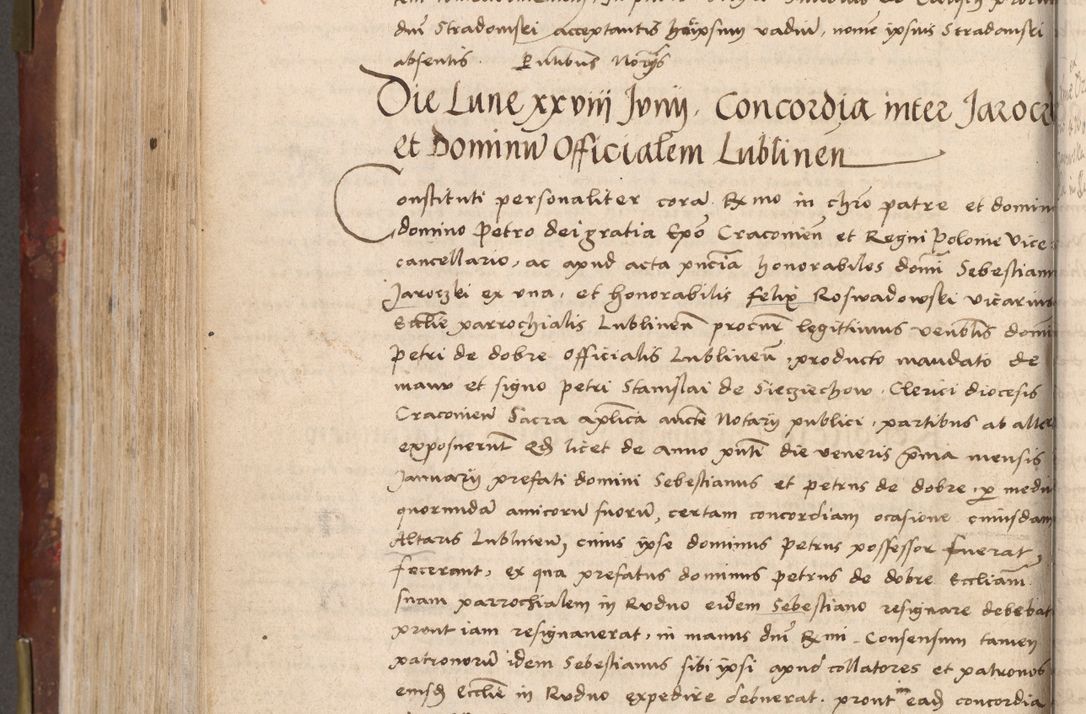 dnī Stradomski acceptantis huiusmodi vadiū, nomē ipsius Stradomski
absentis. Pntibus Notarijs
Die Lune xxviij Junij. Concordia inter Jarocz
et Dominū Officialem Lublinen
Constituti personaliter corā Rmo in chro patre et domino
domino Petro dei gratia Epō Cracovien et Regni Polonie Vice
cancellario, ac apud acta pncia honorabiles domi Sebestianus
Jaroczki ex una, et honorabilis felix Roswadowski vicarius
Ecclie parrochialis Lublinen procur legittimus venblis domi
Petri de dobre officialis Lublinen, producto mandato de
manu et signo petri Stanislai de Sieczechow Clerici diocesis
Cracovien Sacra aplica aucte Notarij publici, partibus ab alter
exposuerunt Qd licet de anno pnti die veneris prima mensis
Januarij prefati domini Sebestianus et petrus de dobre, per mediū
quorundā amicorū suorū, certam concordiam ocasione cuiusdam
Altaris Lublinen, cuius ipse dominus petrus possessor fuerat,
fecerant, ex qua prefatus dominus petrus de dobre Eccliam
suam parrochialem in Rudno eidem Sebestiano resignare debebat
prout iam resignaverat, in manus dni Rmi. Consensum tamen
patronorū idem Sebestianus sibi ipsi apud collatores et patronos
eiusd Ecclie in Rudno expedire debuerat. prout in ead concordia